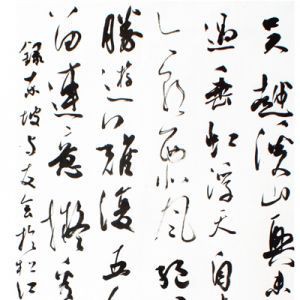 吴越溪山興未
過垂虹浮天自
今朝西北風絕
勝遊難復五人
留連意擬看
錄東坡与友会於松江